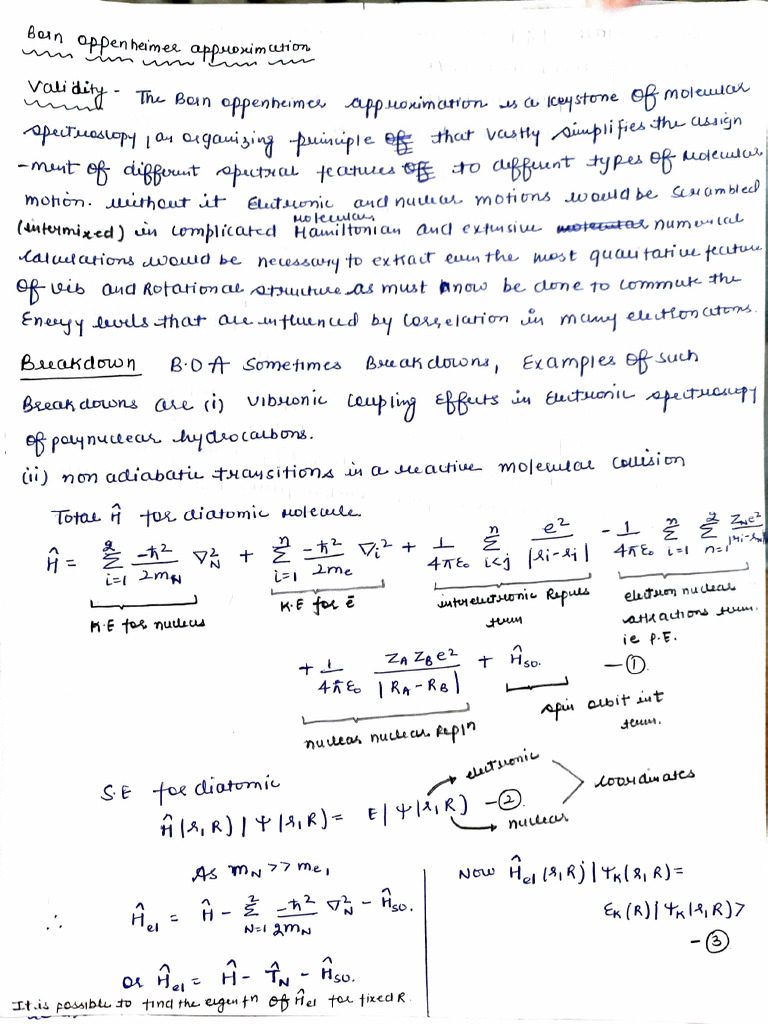 Born oppenheimer approximation
Validity - The Born oppenheimer approximation is a keystone of molecular
spectroscopy, an organizing principle of that vastly simplifies the assign
-ment of different spectral features of to different types of molecular
motion. without it Electronic and nuclear motions would be scrambled
(intermixed) in complicated molecular Hamiltonian and extensive molecular numerical
calculations would be necessary to extract even the most qualitative feature
of vib and Rotational structure as must now be done to commute the
Energy levels that are influenced by correlation in many electron atoms.
Breakdown B.O A Sometimes Breakdowns, Examples of such
Breakdowns are (i) vibronic coupling effects in electronic spectroscopy
of polynuclear hydrocarbons.
(ii) non adiabatic transitions in a reactive molecular collision
Total Ĥ for diatomic molecule.
Ĥ = Σ_{i=1}^{2} -ħ²/2m_N ∇_N² + Σ_{i=1}^{n} -ħ²/2m_e ∇_i² + 1/4πε₀ Σ_{i<j}^{n} e²/|r_i-r_j| - 1/4πε₀ Σ_{i=1}^{n} Σ_{n=1}^{2} Z_N e²/|r_i-r_N|
K.E for nucleus K.E for ē interelectronic Repuls term electron nuclear attractions term. ie P.E.
+ 1/4πε₀ Z_A Z_B e²/|R_A-R_B| + Ĥ_so. - ①
nuclear nuclear Repln spin orbit int term.
S.E for diatomic
Ĥ(r,R) | ψ(r,R) = E | ψ(r,R) - ② electronic nuclear coordinates
As m_N >> m_e,
∴ Ĥ_el = Ĥ - Σ_{N=1}^{2} -ħ²/2m_N ∇_N² - Ĥ_so.
or Ĥ_el = Ĥ - T̂_N - Ĥ_so.
It is possible to find the eigen fn of Ĥ_el for fixed R.
Now Ĥ_el (r,R) | ψ_K(r,R) =
ε_K (R) | ψ_K(r,R)>
- ③